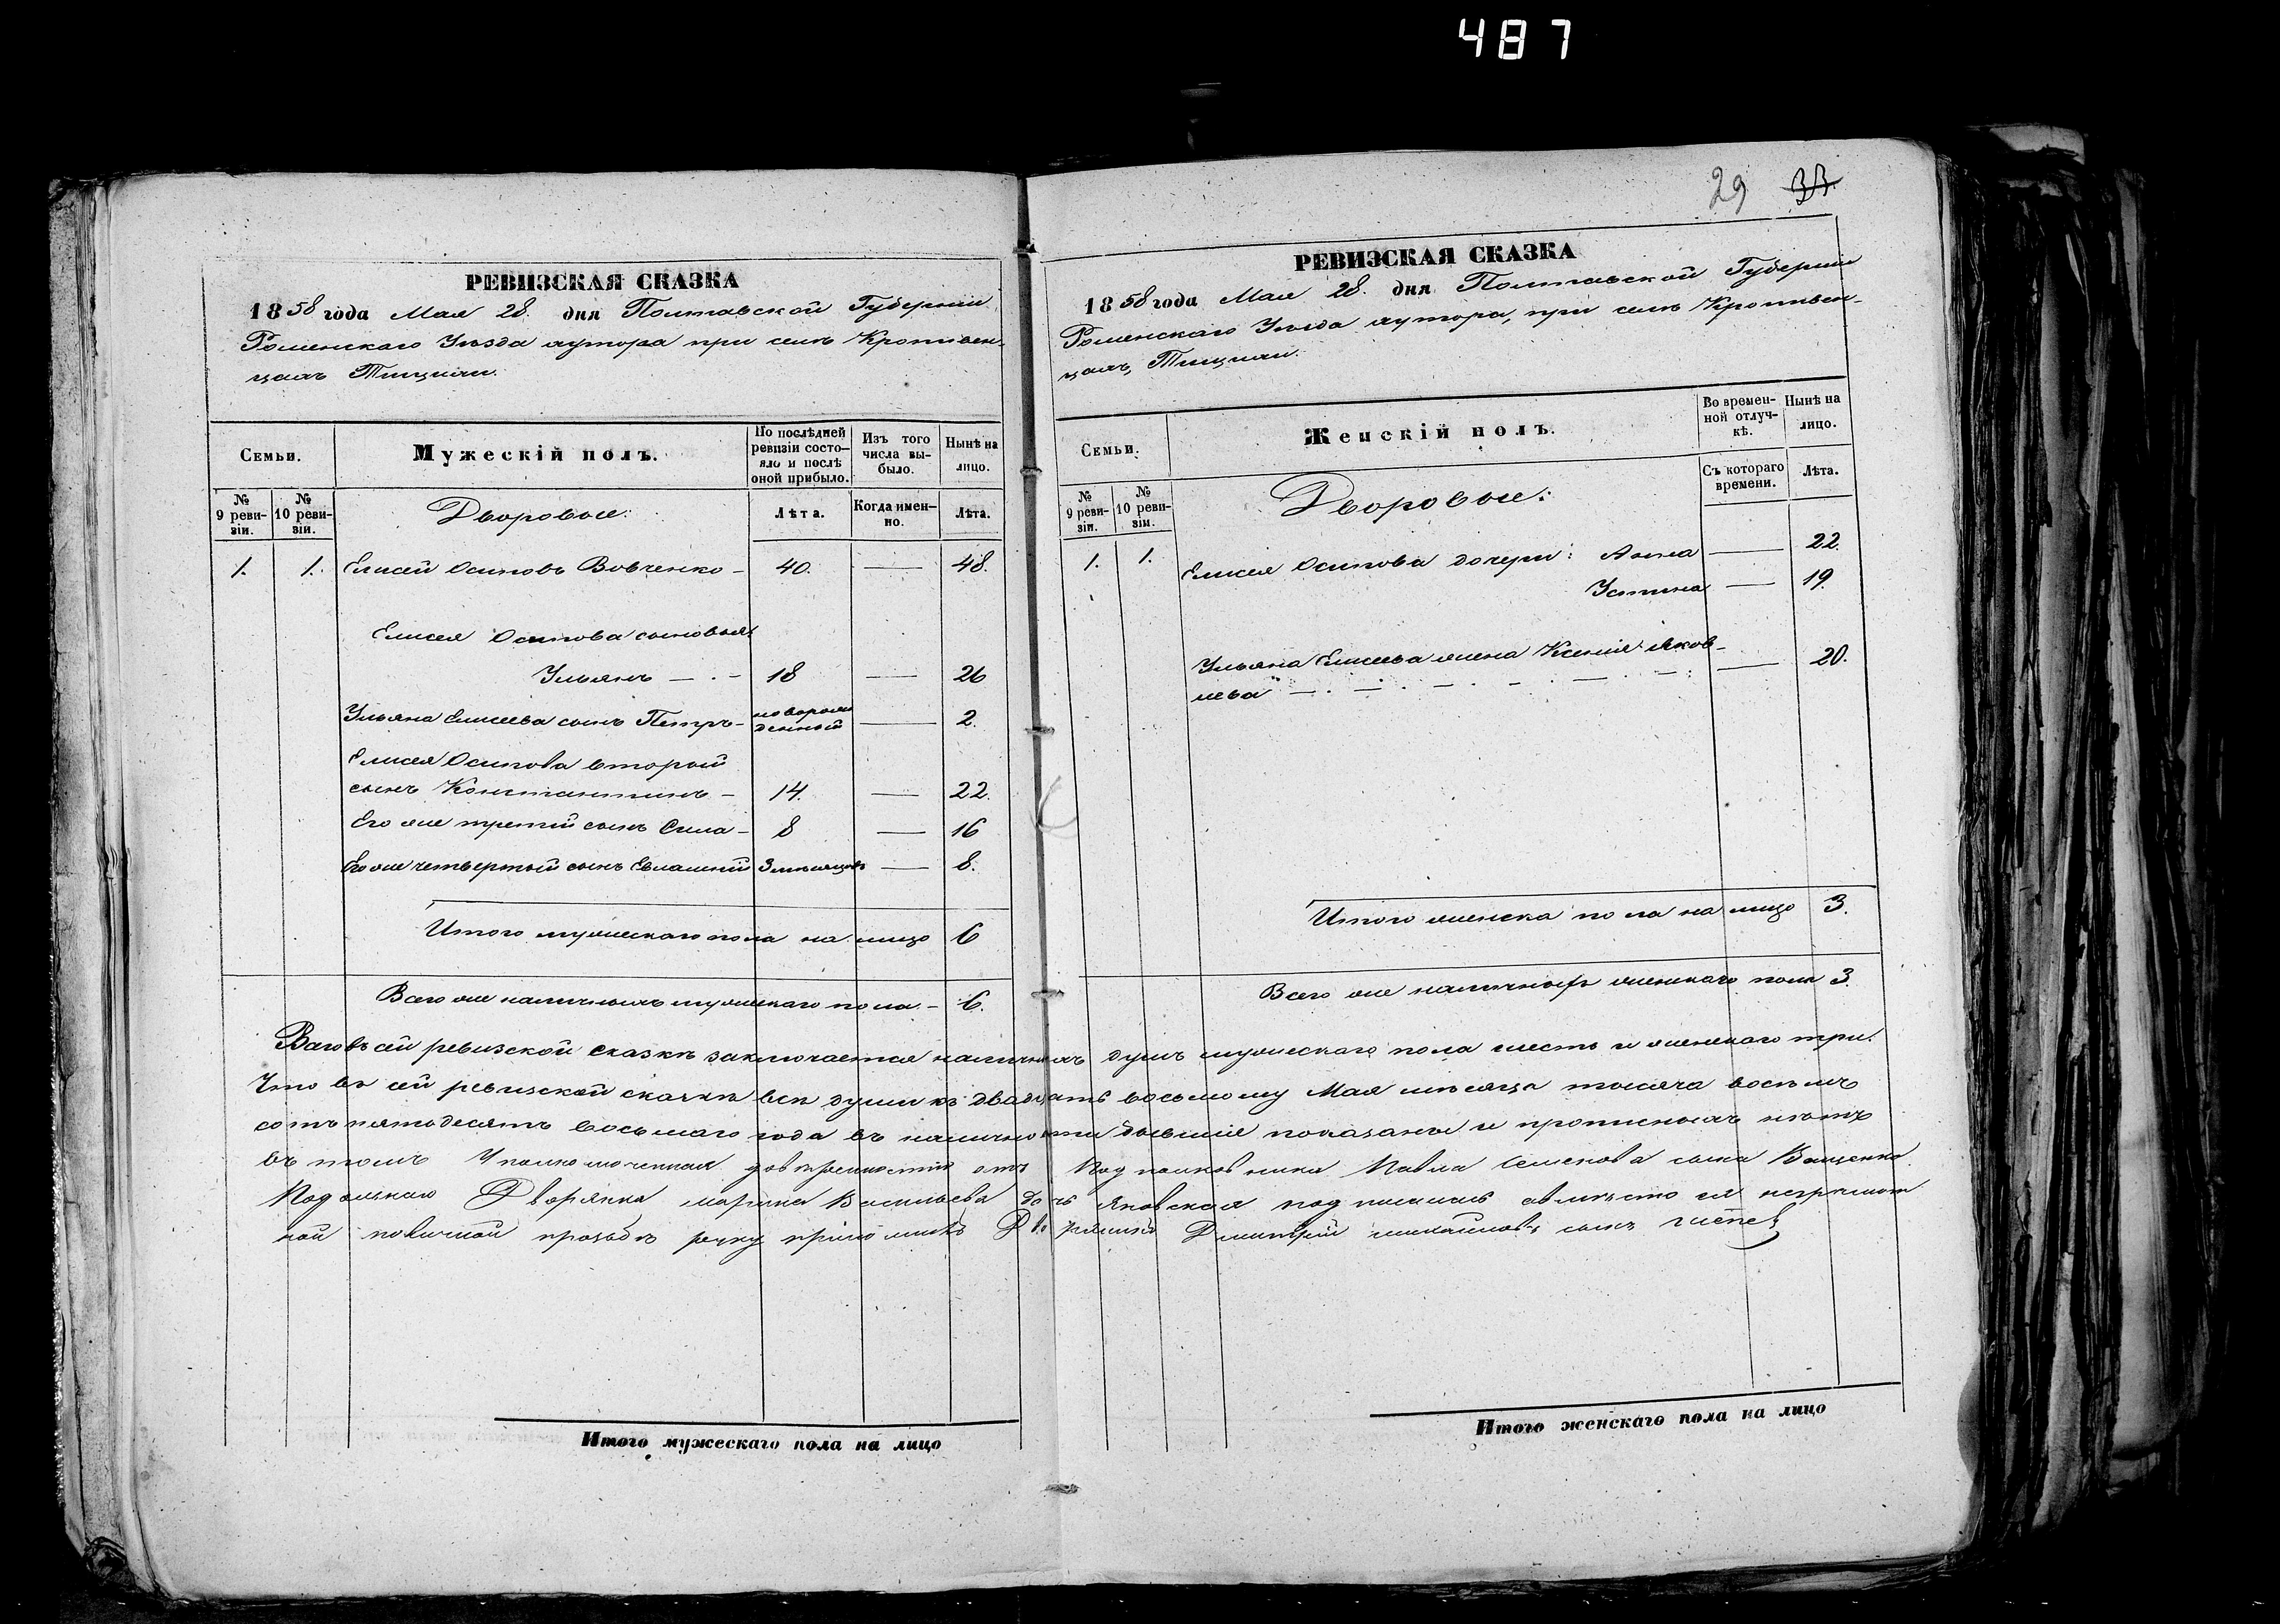 487
29 33.
РЕВИЗСКАЯ СКАЗКА
1858 года Мая 28. дня Полтавской Губерніи
Роменскаго Уѣзда хутора при селѣ Кропивен-
цахъ
Семьи.
Мужескій полъ.
По послѣдней ревизіи состояло и послѣ оной прибыло.
Изъ того числа выбыло.
Нынѣ на лицо.
№ 9 ревизіи.
№ 10 ревизіи.
Дворовые:
Лѣта.
Когда именно.
Лѣта.
1. 1. Елисей Осиповъ Вовченко - 40. — 48.
Елисея Осипова сыновья:
Ульянъ — . - 18 — 26
Ульяна Елисеева сынъ Петръ - новорожденный — 2.
Елисея Осипова второй
сынъ Константинъ - 14. — 22.
Его же третій сынъ Сила - 8 — 16
Его же четвертый сынъ Евлампій 3 мѣсяцовъ — 8.
Итого мужескаго пола на лицо 6
Всего же наличныхъ мужескаго пола - 6.
РЕВИЗСКАЯ СКАЗКА
1858 года Мая 28. дня Полтавской Губерніи
Роменскаго Уѣзда хутора, при селѣ Кропивен-
цахъ,
Семьи.
Женскій полъ.
Во временной отлучкѣ.
Нынѣ на лицо.
№ 9 ревизіи.
№ 10 ревизіи.
Дворовые:
Съ котораго времени.
Лѣта.
1. 1. Елисея Осипова дочери: Анна — 22.
Устина — 19.
Ульяна Елисеева жена Ксенія Яков-
лева — 20.
Итого женска пола на лицо 3.
Всего же наличныхъ женскаго пола 3.
Всего въ сей ревизской сказкѣ заключается наличныхъ душъ мужескаго пола шесть и женскаго три.
Что въ сей ревизской сказкѣ всѣ души къ двадцать восьмому Мая мѣсяца тысяча восемь
сотъ пятьдесятъ восьмаго года въ наличности бывшія показаны и прописныхъ нѣтъ
въ томъ Уполномоченная довѣренностію отъ Подполковника Павла Семенова сына
Дворянка Марина Васильева дочь Яновская подписалась а вмѣсто ея неграмот
ной по личной прозьбѣ руку приложилъ Дворянинъ Дмитрій Михайловъ сынъ
Итого мужескаго пола на лицо
Итого женскаго пола на лицо